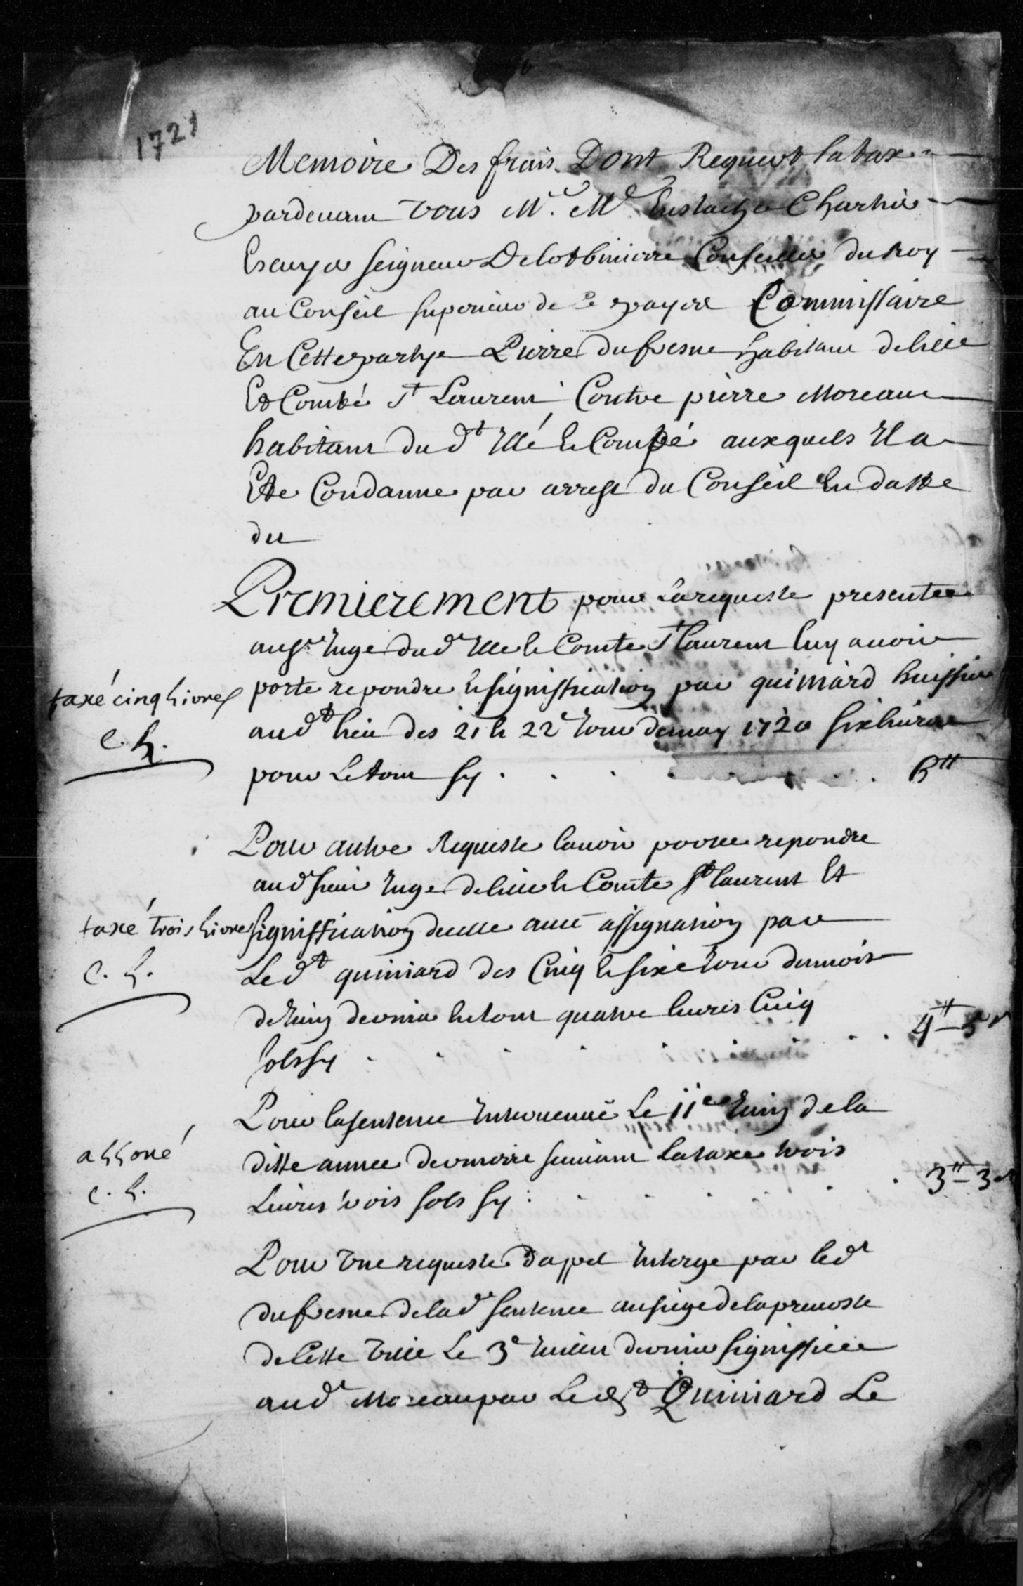 1721
Memoire Des frais Dont Requert la taxe
pardevant vous Mr. Me. Eustache Chartier
Escuyer seigneur Delotbiniere Conseiller du Roy
au Conseil superieur de ce payis Commissaire
En Cette partye Pierre dufresne habitant de lisle
Et Comté St Laurent Contre pierre Moreau
habitant du dt Isle le Comté auxquels Il a
Ete Condanné par arrest du Conseil En datte
du
Premierement pour La requeste presentée
au Sr Juge dud. Isle le Comte St laurent luy avoir
porté repondre et signiffication par quiniard huissier
audt lieu des 21 et 22e Jour de may 1720 six livres
pour Le tout Cy . . . . . . 6ᵗᵗ
taxé cinq livres
C. L.
Pour autre Requeste lavoir portée repondre
aud. sieur Juge de lisle le Comte St laurent Et
signiffication dicelle avec assignation par
Le dt quiniard des Cinq et sixe Jour du mois
de Juin dernier le tout quatre livres Cinq
sols Cy . . . . . . 4ᵗᵗ 5s
taxé trois livres
C. L.
Pour la sentence Intervenue Le 11e Juin de la
ditte année derniere suivant La taxe trois
Livres trois sols Cy . . . . . . 3ᵗᵗ 3s
alloué
C. L.
Pour Une requeste Dappel Interge par led.
dufresne de lad. sentence au siege de la prevosté
de Cette Ville Le 3e Juillet dernier signiffiée
aud. Moreau par Le dt Quiniard Le